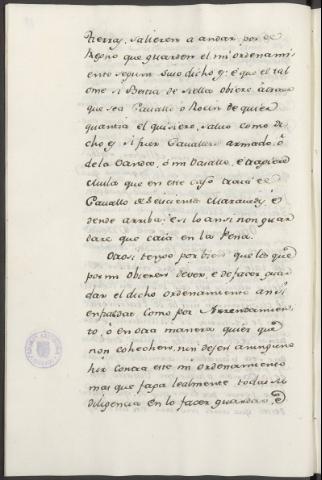 tierras, salieren a andar por de
Regno que guarden el mi ordenami
ento segun suso dicho q: é que el tal
ome si Bestia de siella obiere á traer
que sea Cavallo o Rocin de quier
quantia el quisiere, salvo como di
cho q: si fuer Cavallero armado, ó
de la Vanda, ó mi Vasallo, é traxiere
Mula que en este caso traiá el
Cavallo de seiscientos Maravedis, é
dende arriba: é si lo ansi non guar
dare que caia en la Pena.
Otrosi tengo por bien que los que
por mi obieren de ver, é de facer guar
dar el dicho ordenamiento ansi
en fialdat, como por Arrendamien
to, ó en otra manera quier que
non cohechen, nin dejen a ninguno
hir contra este mi ordenamiento
mas que faga lealmente todas su
diligencia en lo facer guardar, é